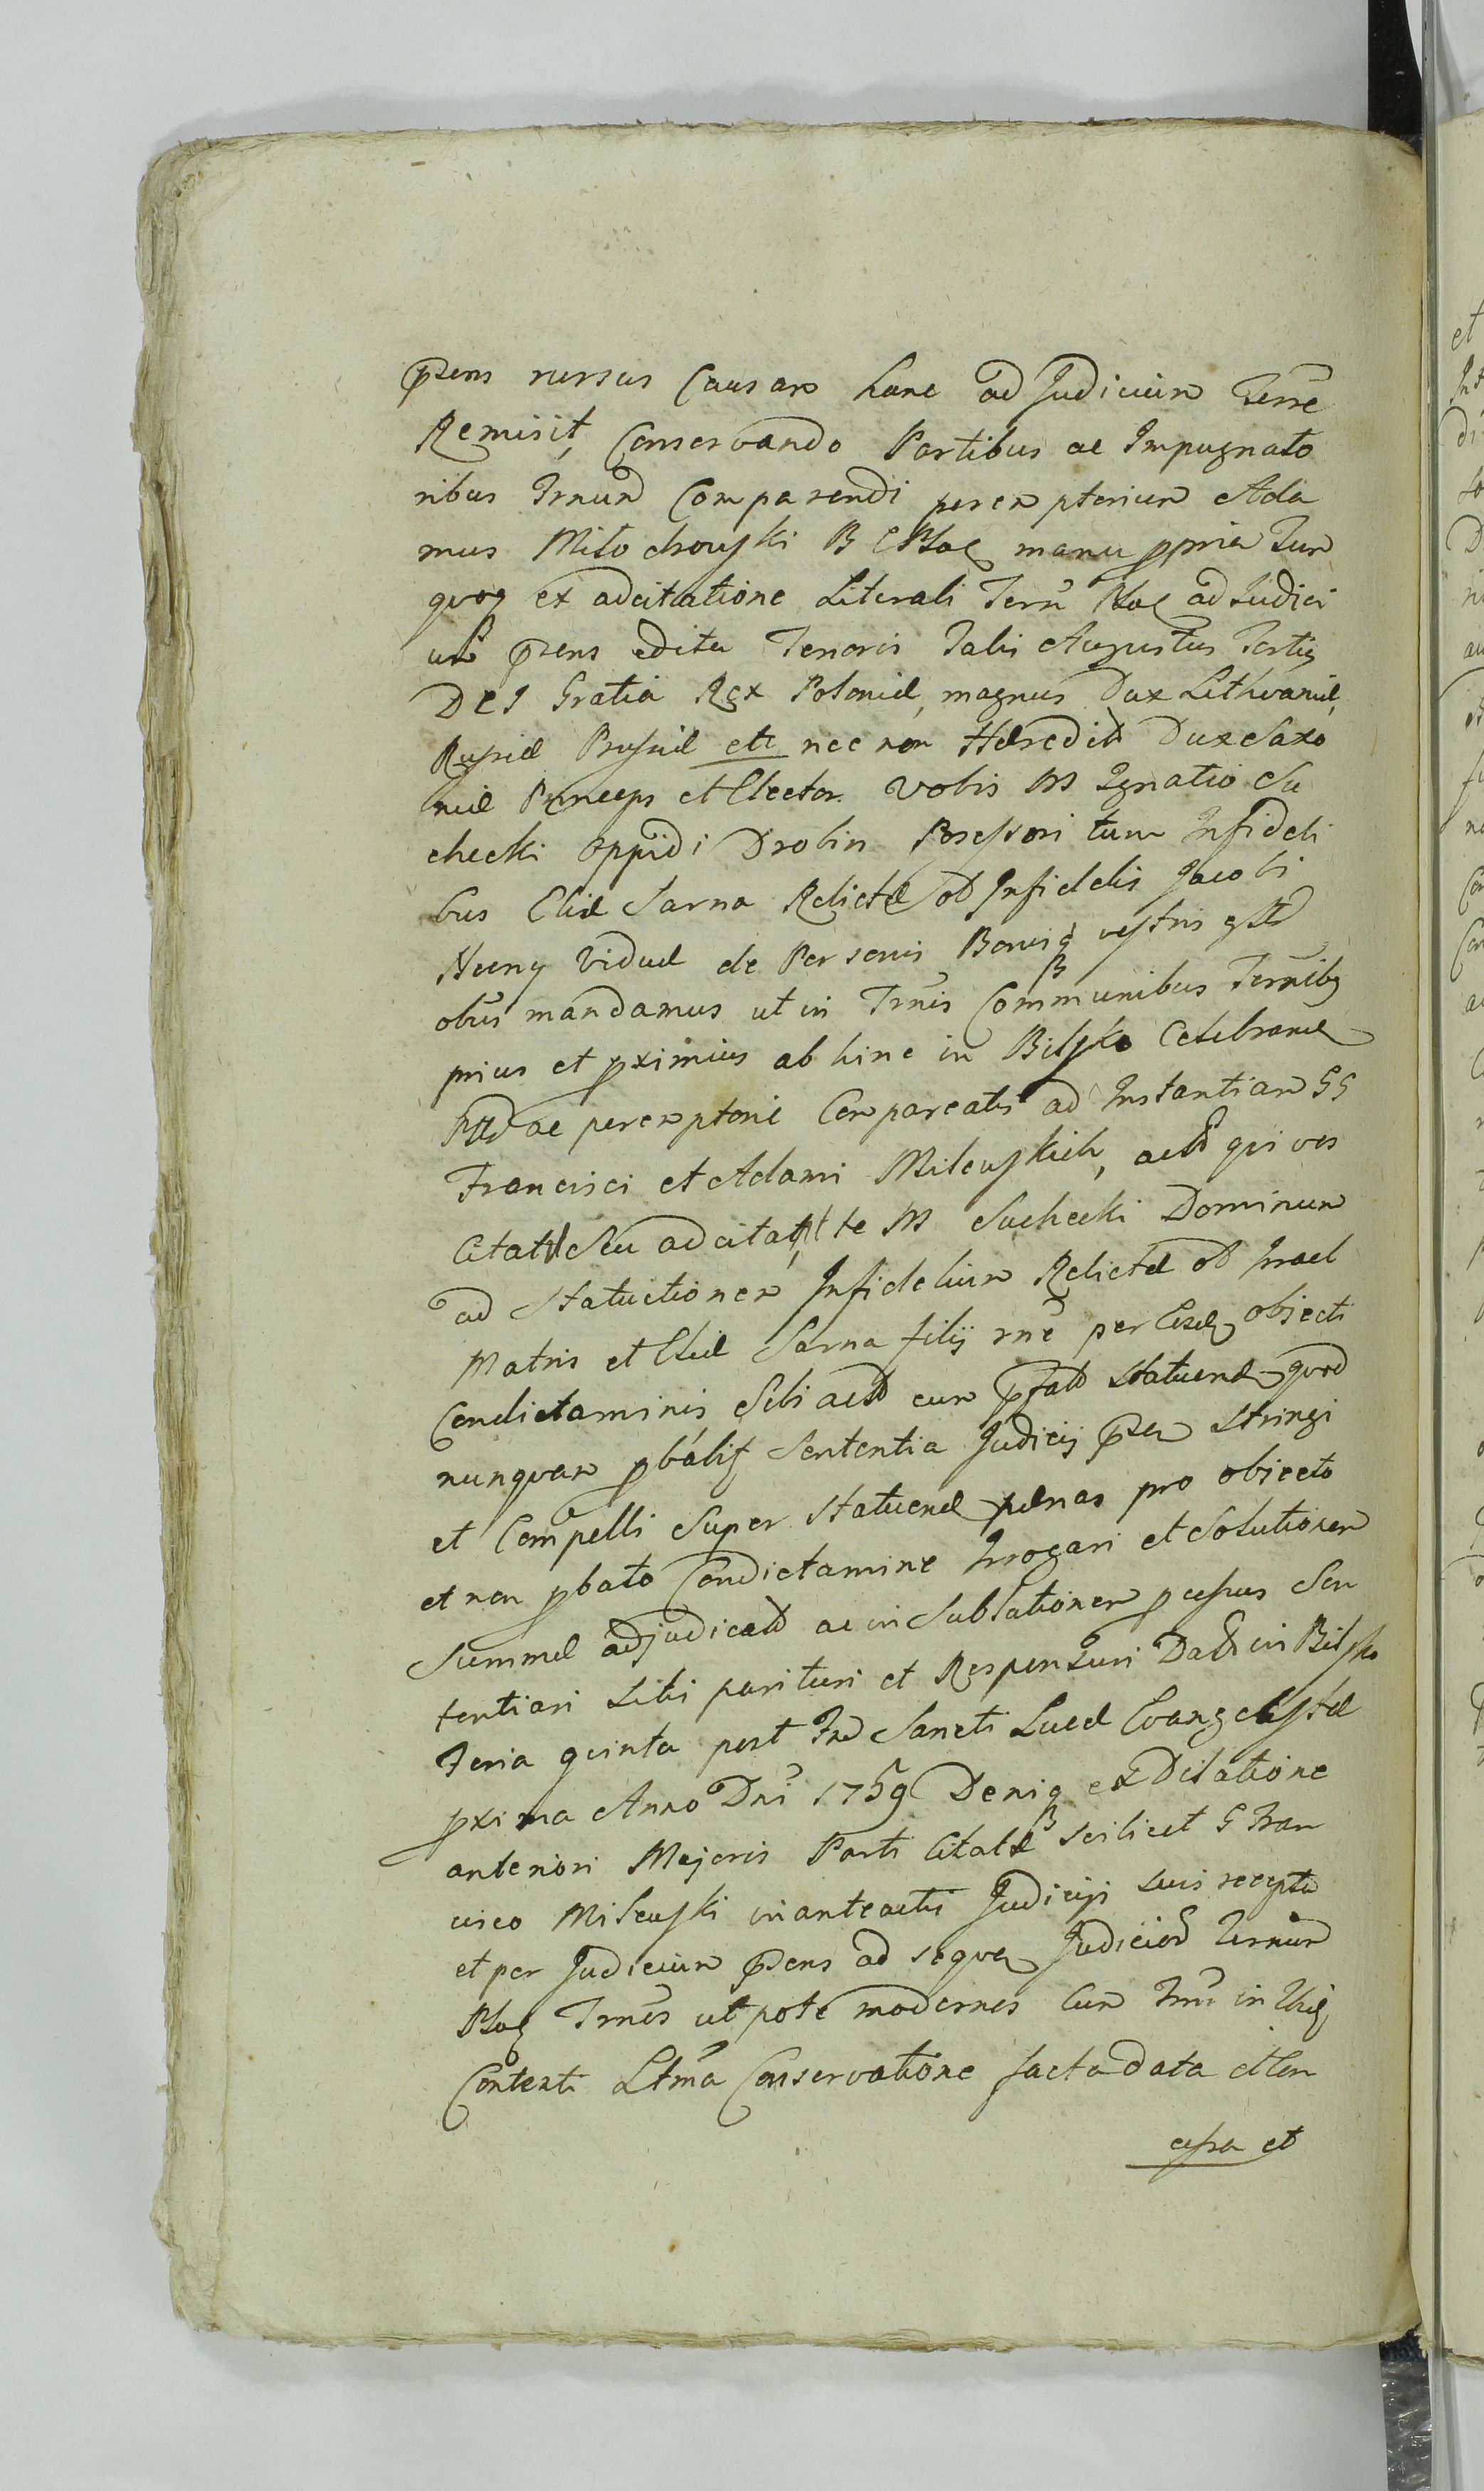 pzens rursus Causam hanc ad Judicium Terre
Remisit, Conservando Partibus ac Impugnato
ribus Trnum Comparendi peremptorium Ada
mus Mitochowski B C Ploc manu ppria Tum
quoq ex adcitatione Literali Terri Ploc ad Judici
um pzens edita Tenoris Talis Augustus Tertiq
DEI Gratia Rex Poloniæ, magnus Dux Lithvaniæ,
Russiæ Prussiæ etc nec non Hæredits Dux Saxo
niæ Princeps et Elector. Vobis M Ignatio Su
checki Oppidi Drobin Possessori tum Infideli
bus Eliæ Sarna Relictæ od Infidelis Jacobi
viduæ de Personis Bonisq vestris
obus mandamus ut in Trnis Communibus Terribq
prius et pximius ab hinc in Bilsko Celebrand
ac peremptorie Compareatis ad Instantiam GG
Francisci et Adami Milewskich, qui vos
Citat Seu adcitat te M Suchecki Dominum
ad Statuitionem Infidelium Relictæ od Israel
Matris et Eliæ Sarna filij rne per Eosd objecti
Condictaminis Sibi cum pfat Statuend quod
nunquam pbalis Sententia Judicij pzen Stringi
et Compelli Super Statuend pænas pro objecto
et non pbato Condictamine Irrogari et Solutionem
Summæ adjudicat ac in Sublationem pcessus Sen
tentiari Sitis parituri et Responsuri Datt in Bilsko
Feria quinta post Fm Sancti Lucæ Evangelistæ
pxima Anno Dni 1759 Deniq ex Dilatione
anteriori Majoris Parti Citatæ scilicet G Fran
cisco Milewski in anteactis Judicijs suis recepta
et per Judicium pzens ad seque Judicior Terrium
Ploc Trnos utpote modernos Cum Trni in
Contenti Ltma Conservatione facta data et Con
cessa et